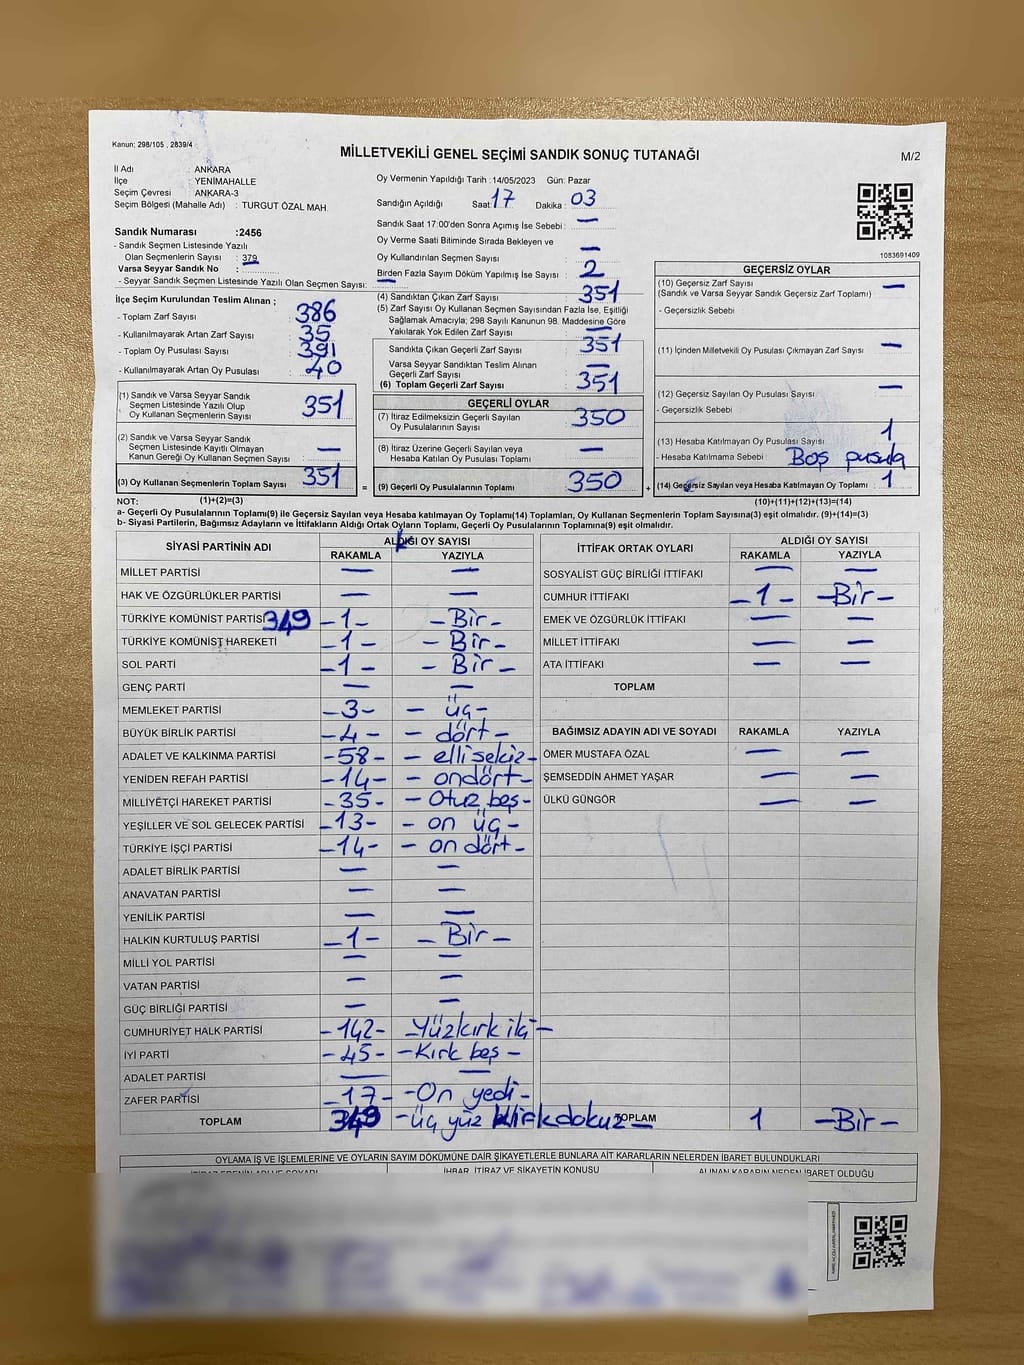 Kanun; 298/105 , 2839/4
MİLLETVEKİLİ GENEL SEÇİMİ SANDIK SONUÇ TUTANAĞI
M/2
İl Adı : ANKARA
İlçe : YENİMAHALLE
Seçim Çevresi : ANKARA-3
Seçim Bölgesi (Mahalle Adı) : TURGUT ÖZAL MAH.
Oy Vermenin Yapıldığı Tarih : 14/05/2023 Gün: Pazar
Sandığın Açıldığı Saat: 17 Dakika : 03
Sandık Saat 17:00'den Sonra Açımış İse Sebebi : —
Oy Verme Saati Bitiminde Sırada Bekleyen ve
Oy Kullandırılan Seçmen Sayısı : —
Birden Fazla Sayım Döküm Yapılmış İse Sayısı : 2
1083691409
Sandık Numarası : 2456
- Sandık Seçmen Listesinde Yazılı
Olan Seçmenlerin Sayısı : 379
Varsa Seyyar Sandık No :
- Seyyar Sandık Seçmen Listesinde Yazılı Olan Seçmen Sayısı: —
İlçe Seçim Kurulundan Teslim Alınan ;
- Toplam Zarf Sayısı : 386
- Kullanılmayarak Artan Zarf Sayısı : 35
- Toplam Oy Pusulası Sayısı : 391
- Kullanılmayarak Artan Oy Pusulası : 40
(1) Sandık ve Varsa Seyyar Sandık
Seçmen Listesinde Yazılı Olup
Oy Kullanan Seçmenlerin Sayısı 351
(2) Sandık ve Varsa Seyyar Sandık
Seçmen Listesinde Kayıtlı Olmayan
Kanun Gereği Oy Kullanan Seçmen Sayısı —
(3) Oy Kullanan Seçmenlerin Toplam Sayısı 351 =
(4) Sandıktan Çıkan Zarf Sayısı : 351
(5) Zarf Sayısı Oy Kullanan Seçmen Sayısından Fazla İse, Eşitliği
Sağlamak Amacıyla; 298 Sayılı Kanunun 98. Maddesine Göre
Yakılarak Yok Edilen Zarf Sayısı : —
Sandıkta Çıkan Geçerli Zarf Sayısı : 351
Varsa Seyyar Sandıktan Teslim Alınan
Geçerli Zarf Sayısı : —
(6) Toplam Geçerli Zarf Sayısı : 351
GEÇERLİ OYLAR
(7) İtiraz Edilmeksizin Geçerli Sayılan
Oy Pusulalarının Sayısı : 350
(8) İtiraz Üzerine Geçerli Sayılan veya
Hesaba Katılan Oy Pusulası Toplamı —
(9) Geçerli Oy Pusulalarının Toplamı 350 +
GEÇERSİZ OYLAR
(10) Geçersiz Zarf Sayısı —
(Sandık ve Varsa Seyyar Sandık Geçersiz Zarf Toplamı) :
- Geçersizlik Sebebi :
(11) İçinden Milletvekili Oy Pusulası Çıkmayan Zarf Sayısı : —
(12) Geçersiz Sayılan Oy Pusulası Sayısı : —
- Geçersizlik Sebebi :
(13) Hesaba Katılmayan Oy Pusulası Sayısı : 1
- Hesaba Katılmama Sebebi : Boş pusula
(14) Geçersiz Sayılan veya Hesaba Katılmayan Oy Toplamı : 1
NOT: (1)+(2)=(3) (10)+(11)+(12)+(13)=(14)
a- Geçerli Oy Pusulalarının Toplamı(9) ile Geçersiz Sayılan veya Hesaba katılmayan Oy Toplamı(14) Toplamları, Oy Kullanan Seçmenlerin Toplam Sayısına(3) eşit olmalıdır. (9)+(14)=(3)
b- Siyasi Partilerin, Bağımsız Adayların ve İttifakların Aldığı Ortak Oyların Toplamı, Geçerli Oy Pusulalarının Toplamına(9) eşit olmalıdır.
SİYASİ PARTİNİN ADI ALDIĞI OY SAYISI
RAKAMLA YAZIYLA
MİLLET PARTİSİ — —
HAK VE ÖZGÜRLÜKLER PARTİSİ — —
TÜRKİYE KOMÜNİST PARTİSİ 349 -1- - Bir -
TÜRKİYE KOMÜNİST HAREKETİ -1- - Bir -
SOL PARTİ -1- - Bir -
GENÇ PARTİ — —
MEMLEKET PARTİSİ -3- - üç -
BÜYÜK BİRLİK PARTİSİ -4- - dört -
ADALET VE KALKINMA PARTİSİ -58- - elli sekiz -
YENİDEN REFAH PARTİSİ -14- - ondört -
MİLLİYETÇİ HAREKET PARTİSİ -35- - Otuz beş -
YEŞİLLER VE SOL GELECEK PARTİSİ -13- - on üç -
TÜRKİYE İŞÇİ PARTİSİ -14- - on dört -
ADALET BİRLİK PARTİSİ — —
ANAVATAN PARTİSİ — —
YENİLİK PARTİSİ — —
HALKIN KURTULUŞ PARTİSİ -1- - Bir -
MİLLİ YOL PARTİSİ — —
VATAN PARTİSİ — —
GÜÇ BİRLİĞİ PARTİSİ — —
CUMHURİYET HALK PARTİSİ -142- - Yüzkırk iki -
İYİ PARTİ -45- - Kırk beş -
ADALET PARTİSİ — —
ZAFER PARTİSİ -17- - On yedi -
TOPLAM 349 - üç yüz kırk dokuz -
İTTİFAK ORTAK OYLARI ALDIĞI OY SAYISI
RAKAMLA YAZIYLA
SOSYALİST GÜÇ BİRLİĞİ İTTİFAKI — —
CUMHUR İTTİFAKI -1- - Bir -
EMEK VE ÖZGÜRLÜK İTTİFAKI — —
MİLLET İTTİFAKI — —
ATA İTTİFAKI — —
TOPLAM
BAĞIMSIZ ADAYIN ADI VE SOYADI RAKAMLA YAZIYLA
ÖMER MUSTAFA ÖZAL — —
ŞEMSEDDİN AHMET YAŞAR — —
ÜLKÜ GÜNGÖR — —
TOPLAM 1 - Bir -
OYLAMA İŞ VE İŞLEMLERİNE VE OYLARIN SAYIM DÖKÜMÜNE DAİR ŞİKAYETLERLE BUNLARA AİT KARARLARIN NELERDEN İBARET BULUNDUKLARI
İTİRAZ EDENİN ADI VE SOYADI İHBAR, İTİRAZ VE ŞİKAYETİN KONUSU ALINAN KARARIN NEDEN İBARET OLDUĞU